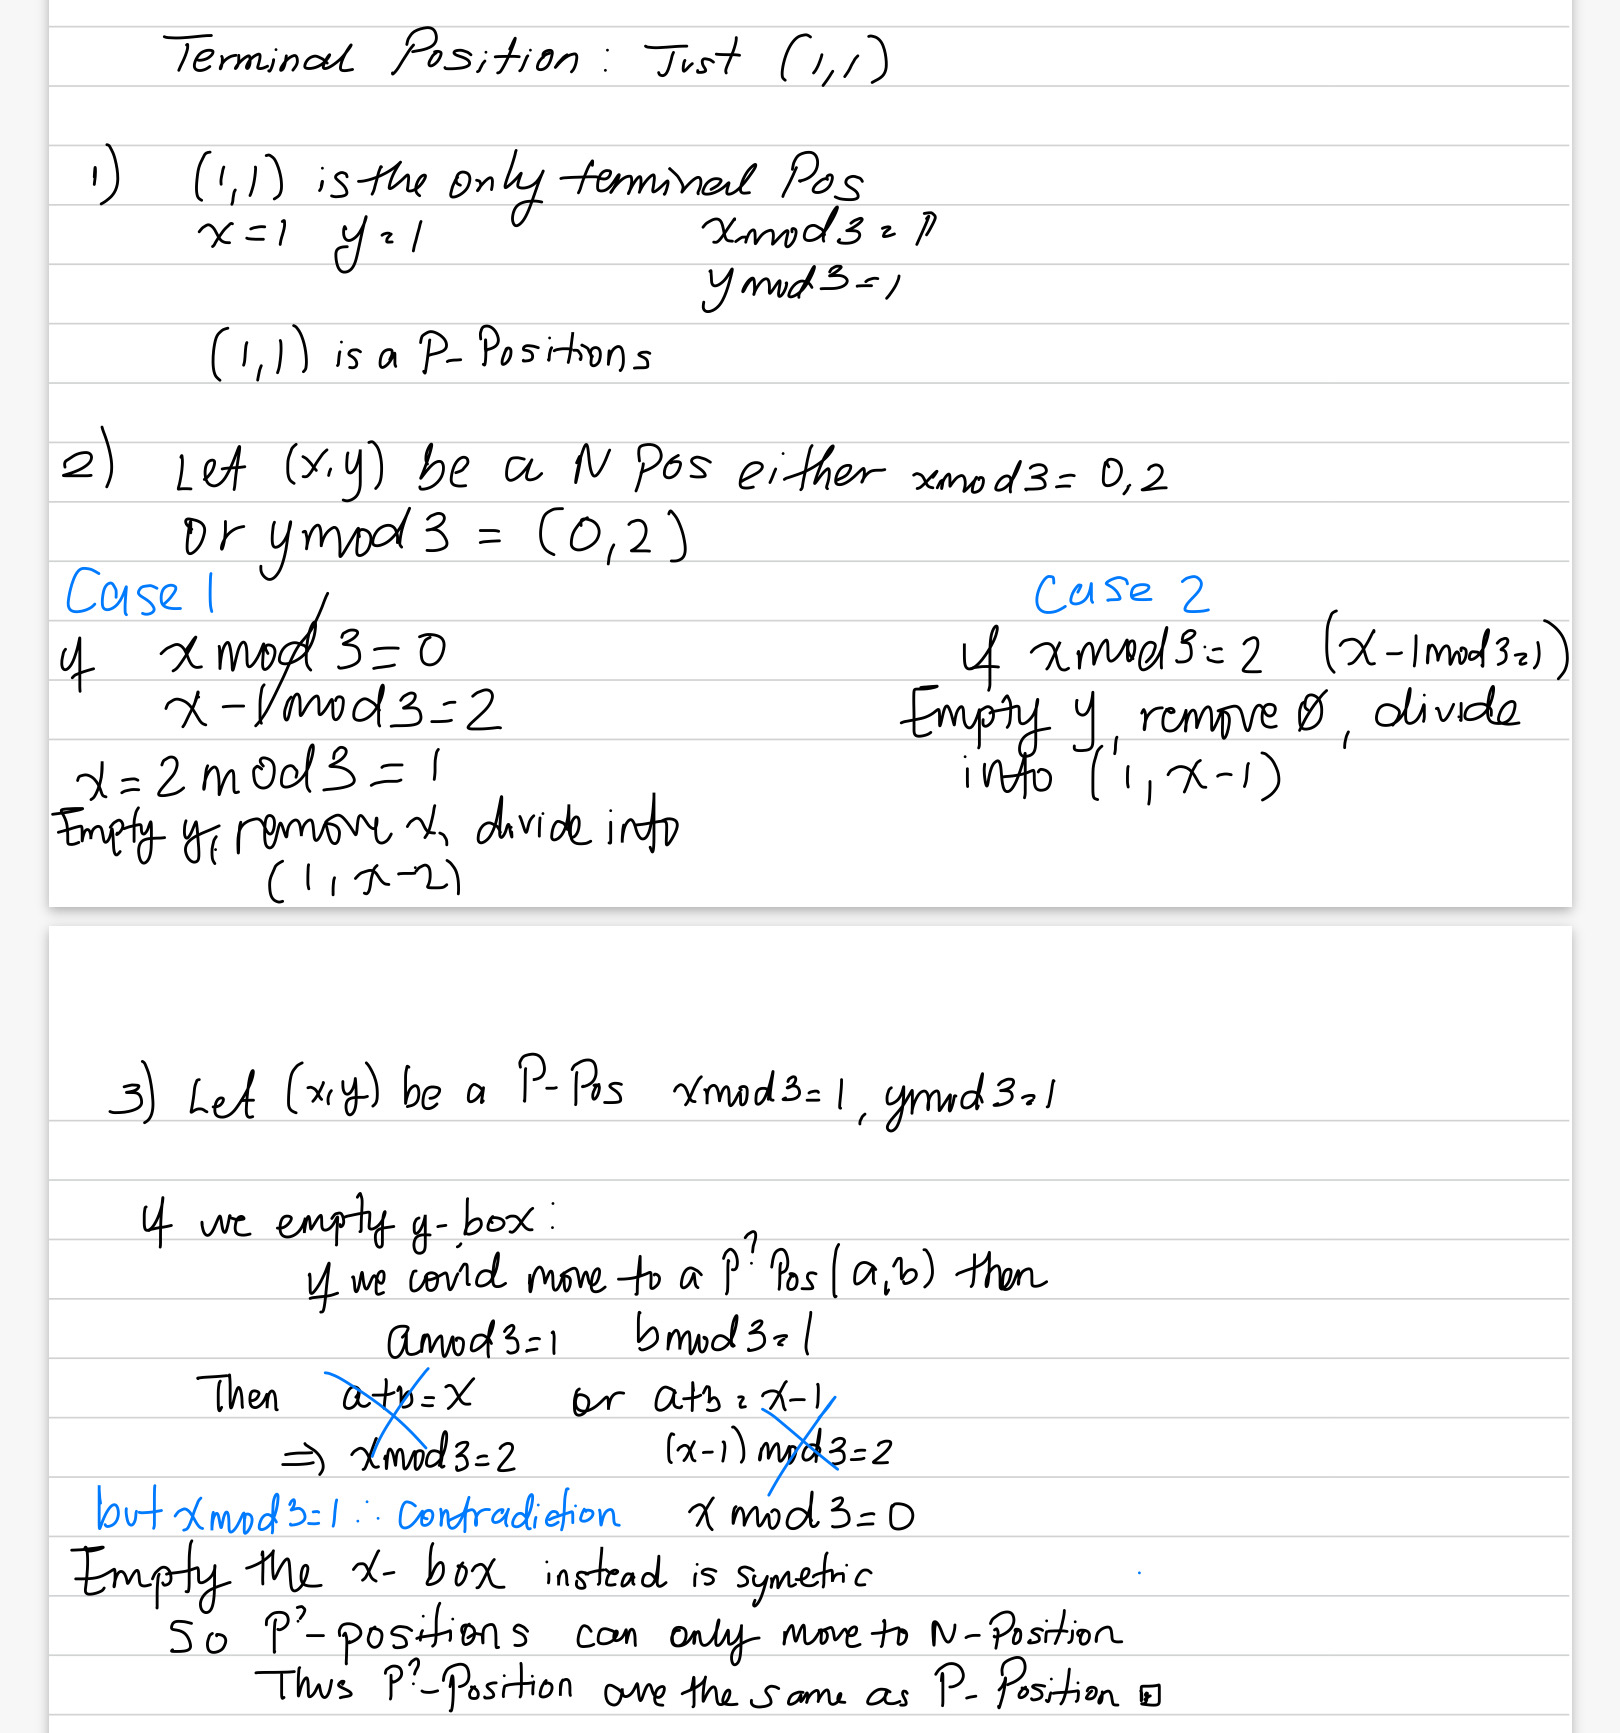 Terminal Position: Just (1,1)
1) (1,1) is the only terminal Pos
x=1 y=1 xmod3=1
ymod3=1
(1,1) is a P-Positions
2) Let (x,y) be a N Pos either xmod3= 0,2
or ymod3 = (0,2)
Case 1
if xmod3=0
x-1mod3=2
x=2mod3=1
Empty y, remove x, divide into
(1,x-2)
Case 2
if xmod3=2 (x-1mod3=1)
Empty y, remove 0, divide
into (1,x-1)
3) Let (x,y) be a P-Pos xmod3=1, ymod3=1
if we empty y-box:
if we could move to a P? Pos (a,b) then
amod3=1 bmod3=1
Then a+b=x or a+b=x-1
⇒ xmod3=2 (x-1)mod3=2
but xmod3=1 ∴ contradiction xmod3=0
Empty the x-box instead is symetric
So P?-positions can only move to N-Position
Thus P?-Position are the same as P-Position